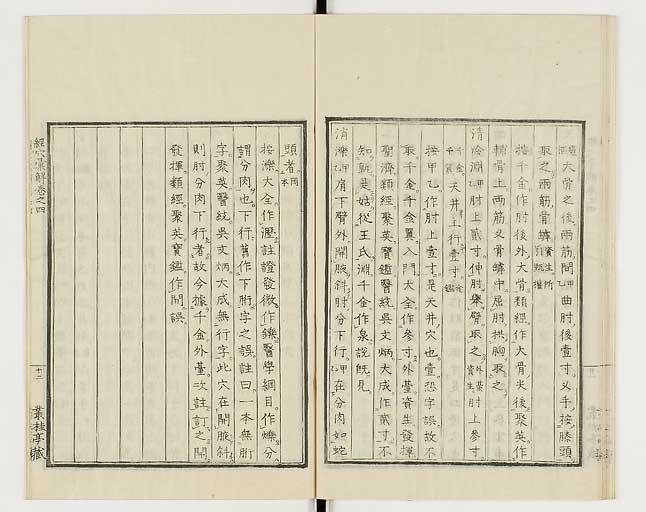 大骨之後兩筋間甲曲肘後壹寸叉手按膝頭
取之兩筋骨罅資生所引甄權
按千金作肘後外大骨類經作大骨尖後聚英作
輔骨上兩筋叉骨罅中屈肘拱胸取之
清冷淵甲肘上貳寸伸肘舉臂取之外臺資生肘上參寸
千金千翼天井上行壹寸金鑑
按甲乙作肘上壹寸是天井穴也壹恐字誤故不
取千金千金翼入門大全作參寸外臺資生發揮
聖濟類經聚英寶鑑醫統吳文炳大成作貳寸不
知孰是姑從王氏淵千金作泉說既見
消濼甲肩下臂外開腋斜肘分下行甲在分肉如蛇
頭者內本
按濼大全作瀝註證發微作鑠醫學綱目作爍分
謂分肉也下行舊作下胻字之誤註曰一本無胻
字聚英醫統吳文炳大成無行字此穴在開腋斜
則肘分肉下行者故今據千金外臺次註訂之開
發揮類經聚英寶鑑作關誤
經穴彙解卷之四
十二
叢桂亭藏